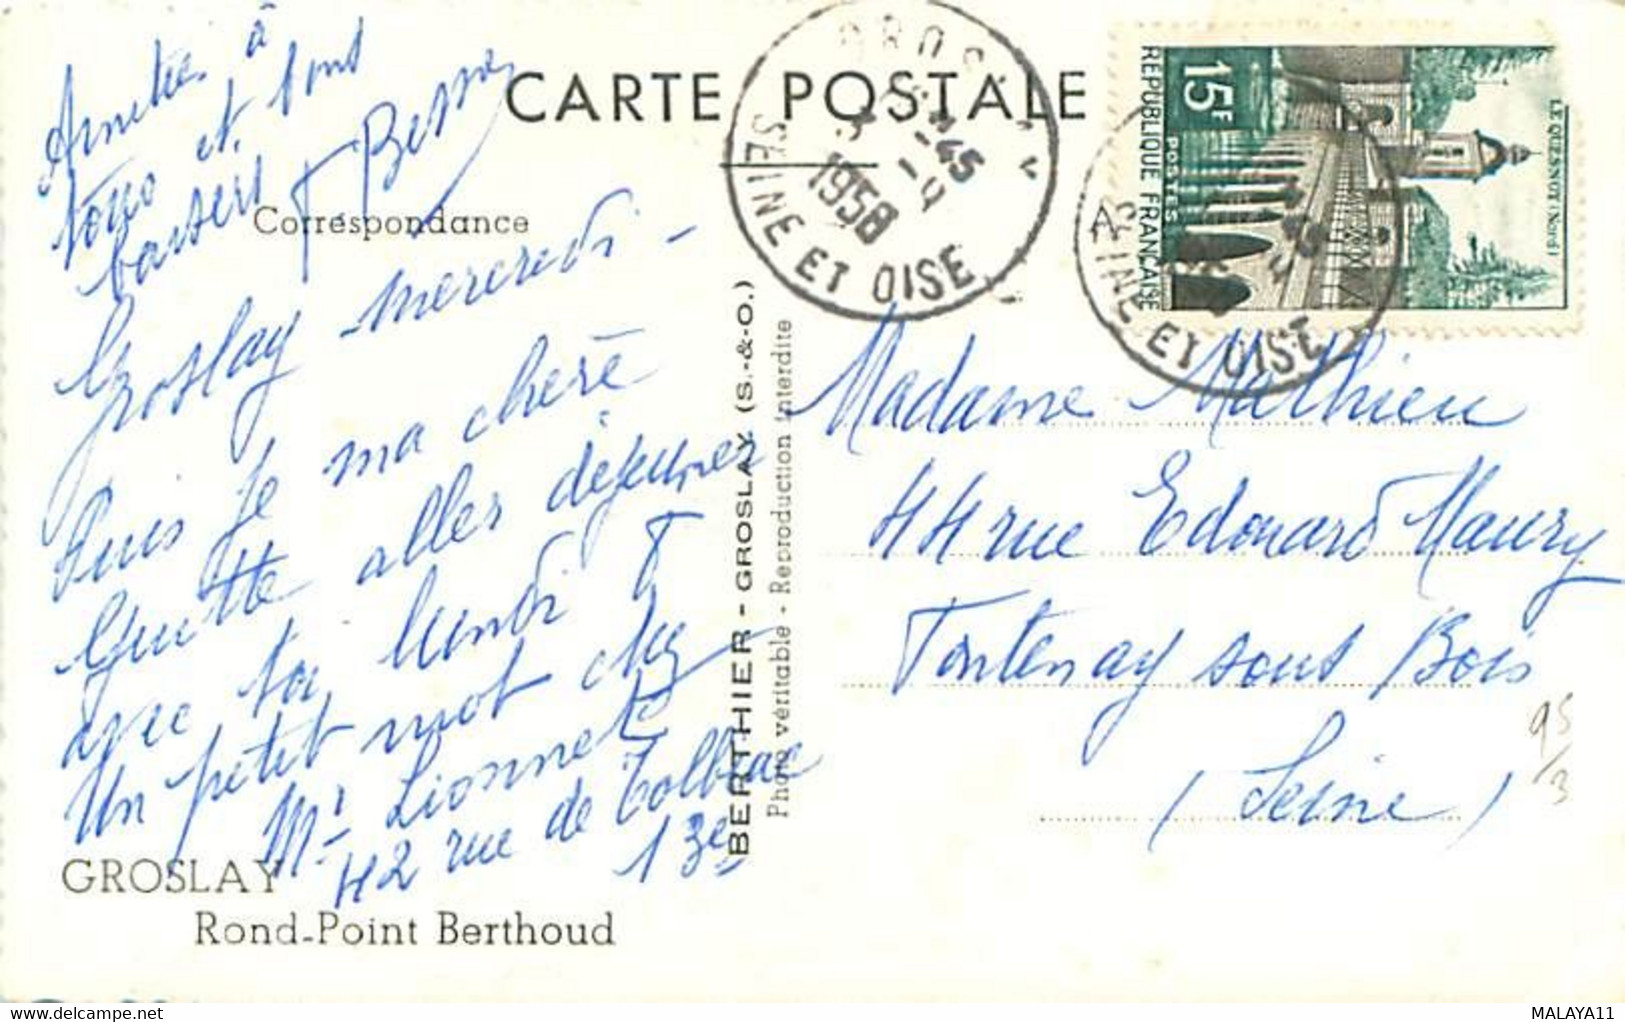 CARTE POSTALE
Correspondance
Groslay mercredi -
Puis je ma chère
Guitte aller déjeuner
avec toi lundi ?
Un petit mot chez
Mr Lionnet
42 rue de Tolbiac
13e
Amitiés à
tous et bons
baisers
GROSLAY
Rond-Point Berthoud
BERTHIER - GROSLAY (S.-&-O.)
Photo véritable - Reproduction interdite
1958
SEINE ET OISE
15F
POSTES
REPUBLIQUE FRANÇAISE
LE QUESNOY (Nord)
SEINE ET OISE
Madame Mathieu
44 rue Edouard Maury
Fontenay sous Bois
(Seine)
95/3
MALAYA11